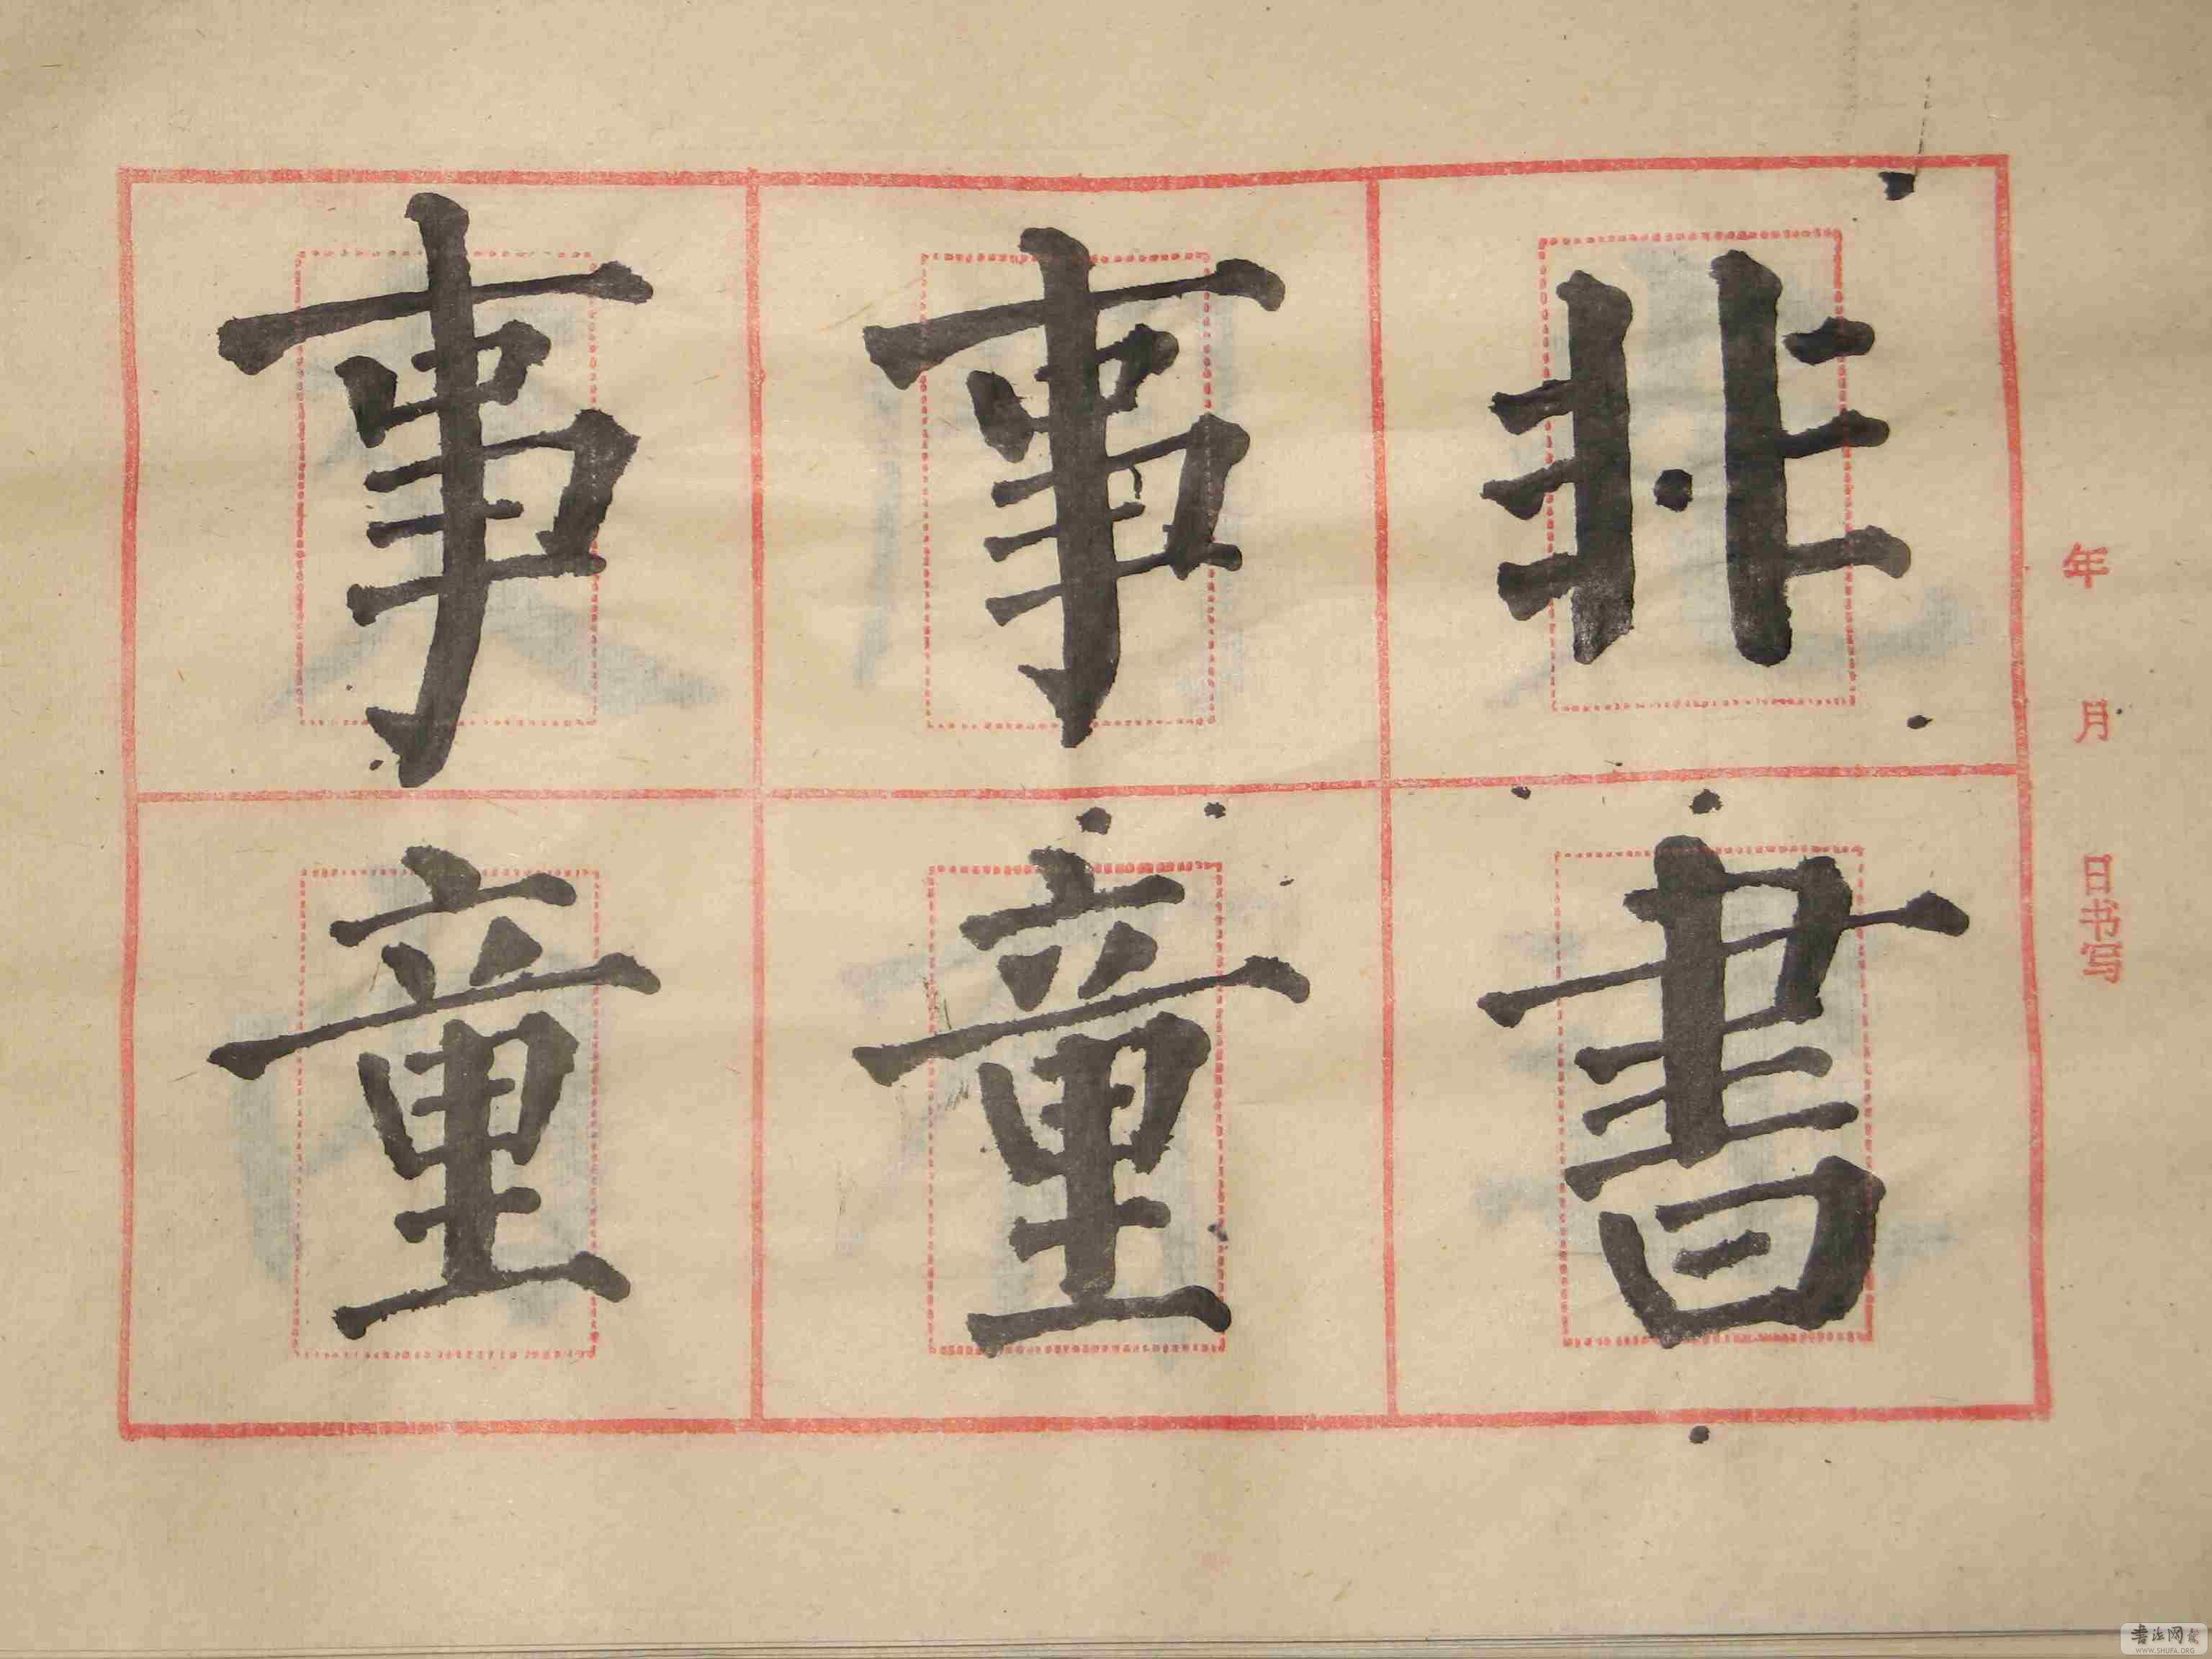 年 月 日书写
非書
事童
事童
书法网
WWW.SHUFA.ORG